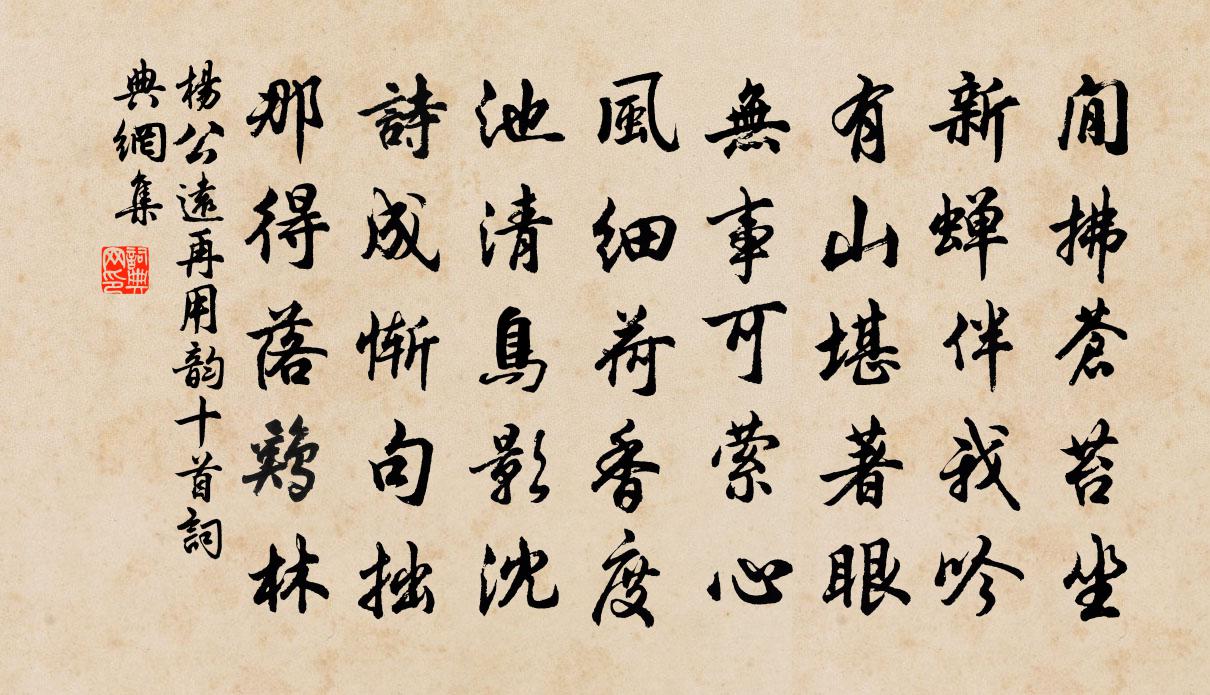 閒拂蒼苔坐
新蟬伴我吟
有山堪著眼
無事可縈心
風細荷香度
池清鳥影沈
詩成慚句拙
那得落鷄林
楊公遠再用韵十首詞
典網集
詞典
网印